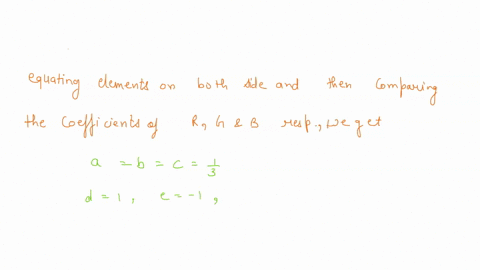 equating elements on both side and then comparing
the coefficients of R, G & B resp., we get
a = b = c = 1/3
d = 1, e = -1,